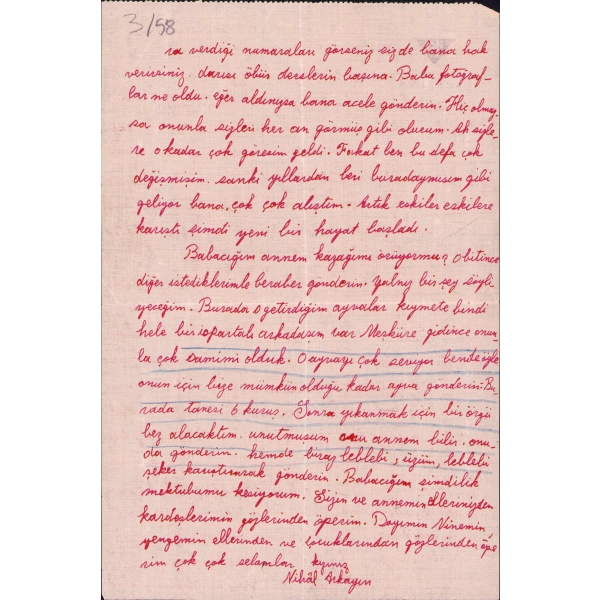 3/58
ra verdiği numaraları görseniz sizde bana hak
verirsiniz. darısı öbür derslerin başına. Baba fotoğraf-
lar ne oldu. eğer aldınıysa bana acele gönderin. Hiç olmay-
sa onunla sizleri her an görmüş gibi olurum. Ah sizle-
re o kadar çok göresim geldi. Fakat ben bu defa çok
değişmişim. sanki yıllardan beri buradaymışım gibi
geliyor bana, çok çok alıştım. Artık eskiler eskilere
karıştı şimdi yeni bir hayat başladı.
Babacığım annem kazağımı örüyormu? o bitince
diğer istediklerimle beraber gönderin. Yalnız bir şey söyli
yeceğim. Burada o getirdiğim ayvalar kıymete bindi
hele bir ispartalı arkadaşım var Meşküre gidince onun-
la çok samimi olduk. O ayvayı çok seviyor bende öyle
onun için bize mümkün olduğu kadar ayva gönderin. Bu-
rada tanesi 6 kuruş. Sonra yıkanmak için bir örgü
bez alacaktım. unutmuşum onu annem bilir. onu-
da gönderin. hemde biraz leblebi, üzüm, leblebi
şeker karıştırarak gönderin. Babacığım şimdilik
mektubumu kesiyorum. Sizin ve annemin ellerinizden
kardeşlerimin gözlerinden öperim. Dayımın Ninemin
yengemin ellerinden ve çocuklarından gözlerinden öpe
rim çok çok selamlar. kızınız
Nihâl Arkayın